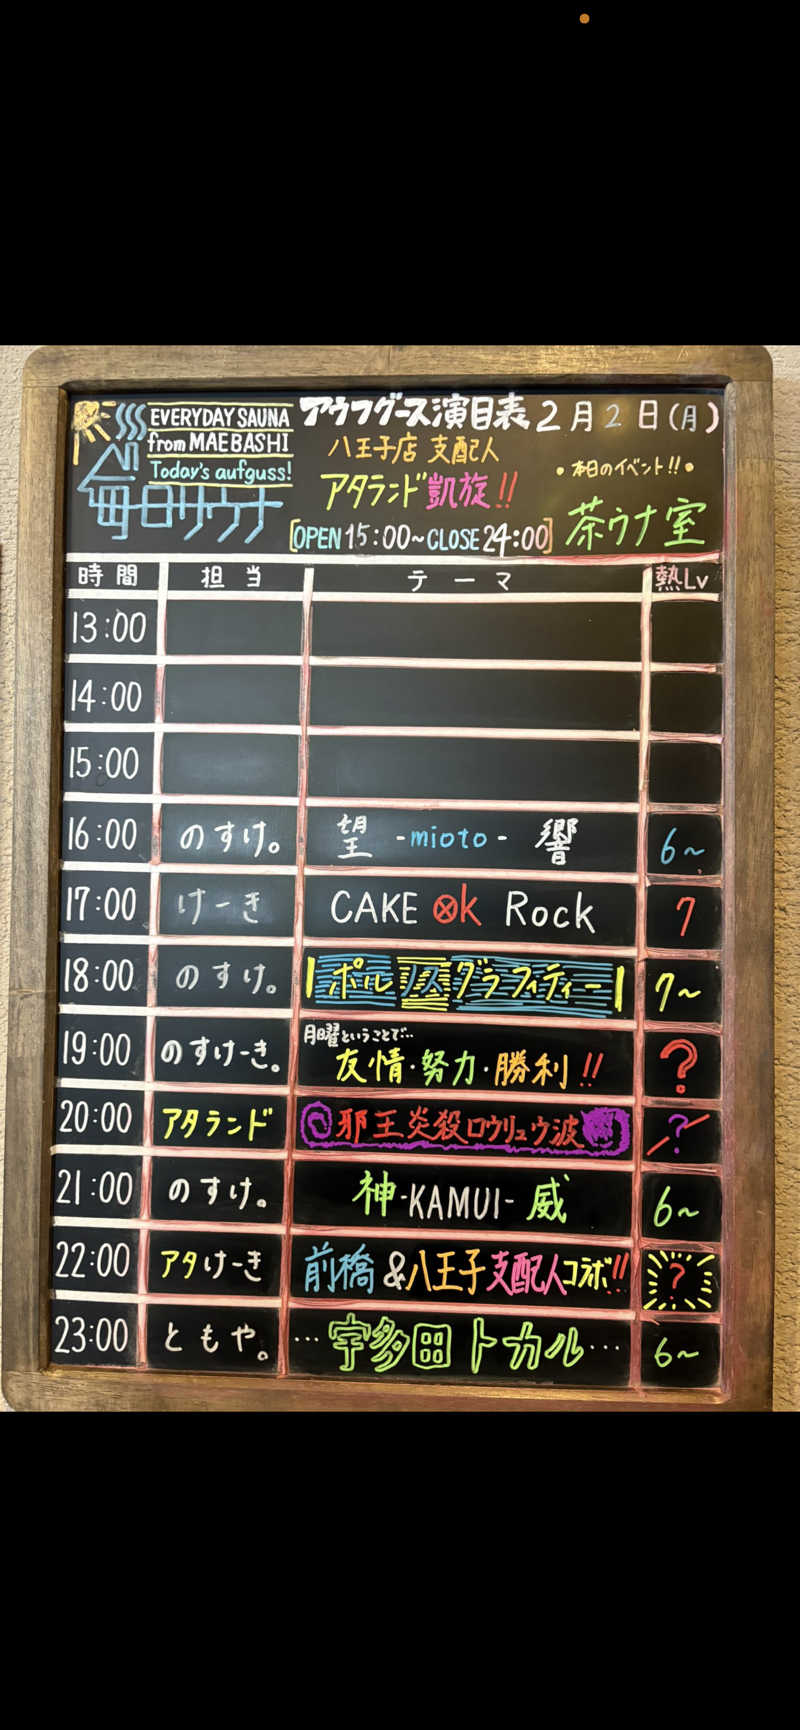 EVERYDAY SAUNA
from MAEBASHI
Today's aufguss!
毎日サウナ
アウフグース演目表 2月2日(月)
八王子店 支配人
アタランド凱旋!!
[OPEN 15:00~CLOSE 24:00]
•本日のイベント!!•
茶ウナ室
時間 担当 テーマ 熱Lv
13:00
14:00
15:00
16:00 のすけ。 望 -mioto- 響 6~
17:00 けーき CAKE ⊗k Rock 7
18:00 のすけ。 |ポルノグラフィティー| 7~
19:00 のすけーき。 月曜ということで… 友情・努力・勝利!! ?
20:00 アタランド 邪王炎殺ロウリュウ波 ?
21:00 のすけ。 神-KAMUI-威 6~
22:00 アタけーき 前橋&八王子支配人コラボ!! ?
23:00 ともや。 …宇多田トカル… 6~